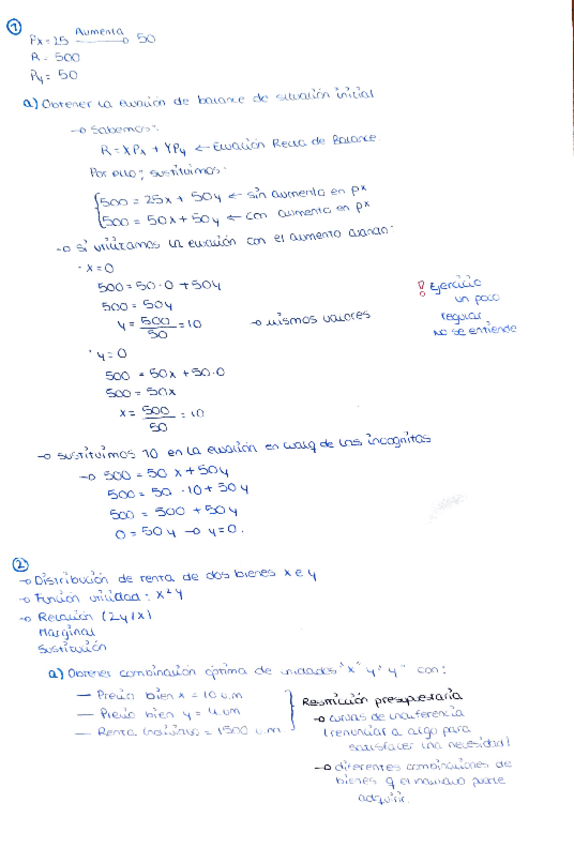 ①
Px = 25 Aumenta → 50
R = 500
Py = 50
a) Obtener la ecuación de balance de situación inicial
→ Sabemos:
R = XPx + YPy ← Ecuación Recta de Balance
Por ello; sustituimos:
500 = 25x + 50y ← sin aumento en px
500 = 50x + 50y ← con aumento en px
→ Si utilizamos la ecuación con el aumento cuando:
· x = 0
500 = 50·0 + 50y
500 = 50y
y = 500/50 = 10 → mismos valores
! Ejercicio
un poco
regular
no se entiende
· y = 0
500 = 50x + 50·0
500 = 50x
x = 500/50 = 10
→ sustituimos 10 en la ecuación en cualq de las incognitas
→ 500 = 50x + 50y
500 = 50·10 + 50y
500 = 500 + 50y
0 = 50y → y = 0.
②
→ Distribución de renta de dos bienes x e y
→ Función utilidad: x²y
→ Relación (2y/x)
Marginal
Sustitución
a) Obtener combinación óptima de unidades "x" y "y" con:
— Precio bien x = 10 u.m
— Precio bien y = 4 um
— Renta = 1500 u.m
Restricción presupuetaria
→ curvas de indiferencia
(renunciar a algo para
satisfacer una necesidad)
→ diferentes combinaciones de
bienes q el individuo puede
adquirir.